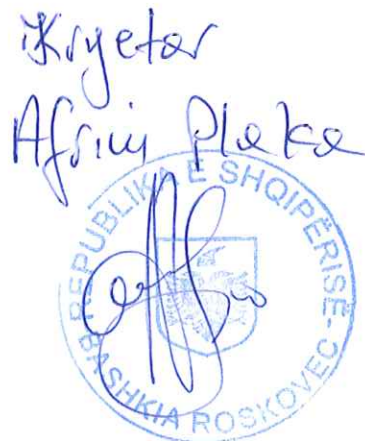 Kryetar
Afrim Plaka
REPUBLIKA E SHQIPËRISË - BASHKIA ROSKOVEC